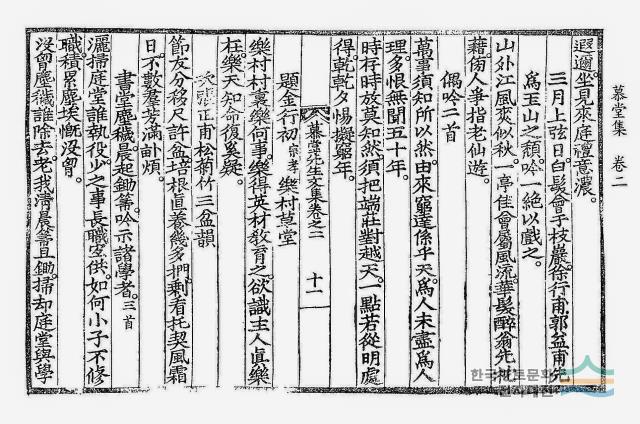 慕堂集 卷二
遐邇坐見來庭禮意濃。
三月上弦日。白髮會于枝巖。徐行甫郭益甫先
爲玉山之頹。吟一絕以戲之。
山外江風爽似秋。一亭佳會屬風流。華髮醉翁先被
藉。傍人爭指老仙遊。
偶吟二首
萬事須知所以然。由來窮達係乎天。爲人未盡爲人
理。多恨無聞五十年。
時存時放莫知然。須把端莊對越天。一點若從明處
得。乾乾夕惕擬窮年。
慕堂先生文集卷之二 十一
題金行初 宗孝 樂村草堂
樂村村裏樂何事。樂得英材敎育之。欲識主人眞樂
在。樂天知命復奚疑。
次張正甫松菊竹三盆韻
節友分移尺許盆。培根眞養幾多捫。剩看托契風霜
日。不數羣芳滿訃煩。
書堂塵穢。晨起鋤箒。吟示諸學者。三首
灑掃庭堂誰執役。少之事長職宜供。如何小子不修
職。積累塵埃慨沒曾。
沒曾塵穢誰除去。老我淸晨箒且鋤。掃却庭堂與學
한국향토문화전자대전